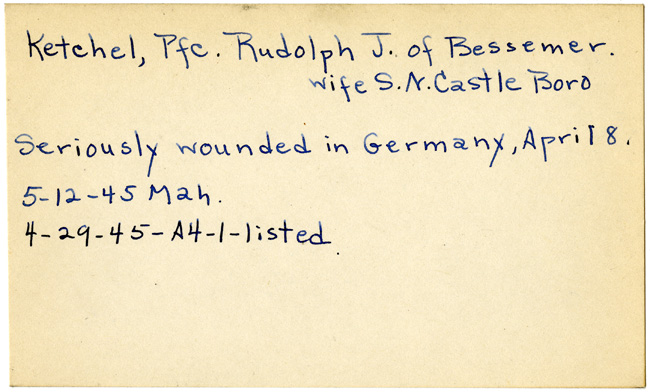 Ketchel, Pfc. Rudolph J. of Bessemer.
wife S.N. Castle Boro
Seriously wounded in Germany, April 8.
5-12-45 Mah.
4-29-45-A4-1-listed